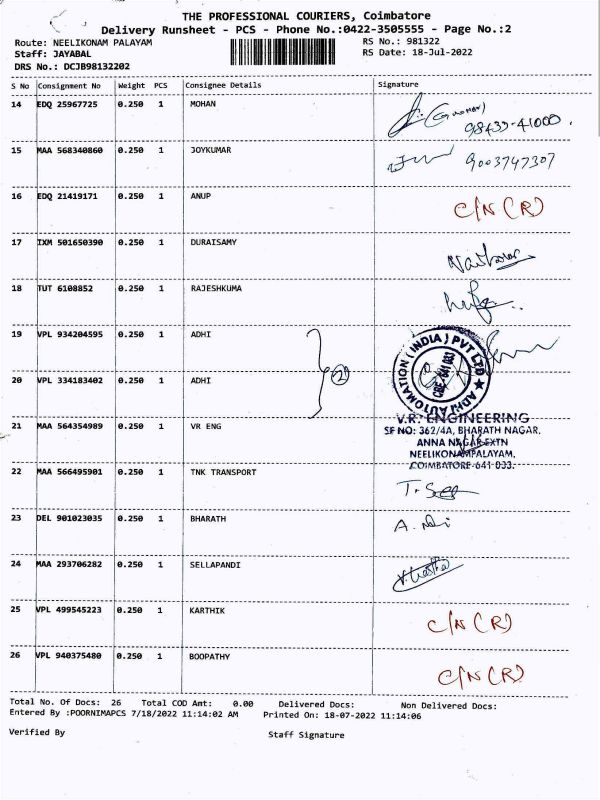 THE PROFESSIONAL COURIERS, Coimbatore
Delivery Runsheet - PCS - Phone No.:0422-3505555 - Page No.:2
Route: NEELIKONAM PALAYAM
Staff: JAYABAL
DRS No.: DCJB98132202
RS No.: 981322
RS Date: 18-Jul-2022
S No Consignment No Weight PCS Consignee Details Signature
14 EDQ 25967725 0.250 1 MOHAN
98433-41000.
15 MAA 568340860 0.250 1 JOYKUMAR 9003747307
16 EDQ 21419171 0.250 1 ANUP C/N (R)
17 IXM 501650390 0.250 1 DURAISAMY
18 TUT 6108852 0.250 1 RAJESHKUMA
19 VPL 934204595 0.250 1 ADHI
2
20 VPL 334183402 0.250 1 ADHI
ADHI AUTOMATION (INDIA) PVT LTD
CBE-641 033
21 MAA 564354989 0.250 1 VR ENG
V.R. ENGINEERING
SF NO: 362/4A, BHARATH NAGAR,
ANNA NAGAR EXTN
NEELIKONAMPALAYAM,
COIMBATORE-641 033.
22 MAA 566495901 0.250 1 TNK TRANSPORT
23 DEL 901023035 0.250 1 BHARATH
24 MAA 293706282 0.250 1 SELLAPANDI
25 VPL 499545223 0.250 1 KARTHIK C/N (R)
26 VPL 940375480 0.250 1 BOOPATHY C/N (R)
Total No. Of Docs: 26 Total COD Amt: 0.00 Delivered Docs: Non Delivered Docs:
Entered By :POORNIMAPCS 7/18/2022 11:14:02 AM Printed On: 18-07-2022 11:14:06
Verified By Staff Signature